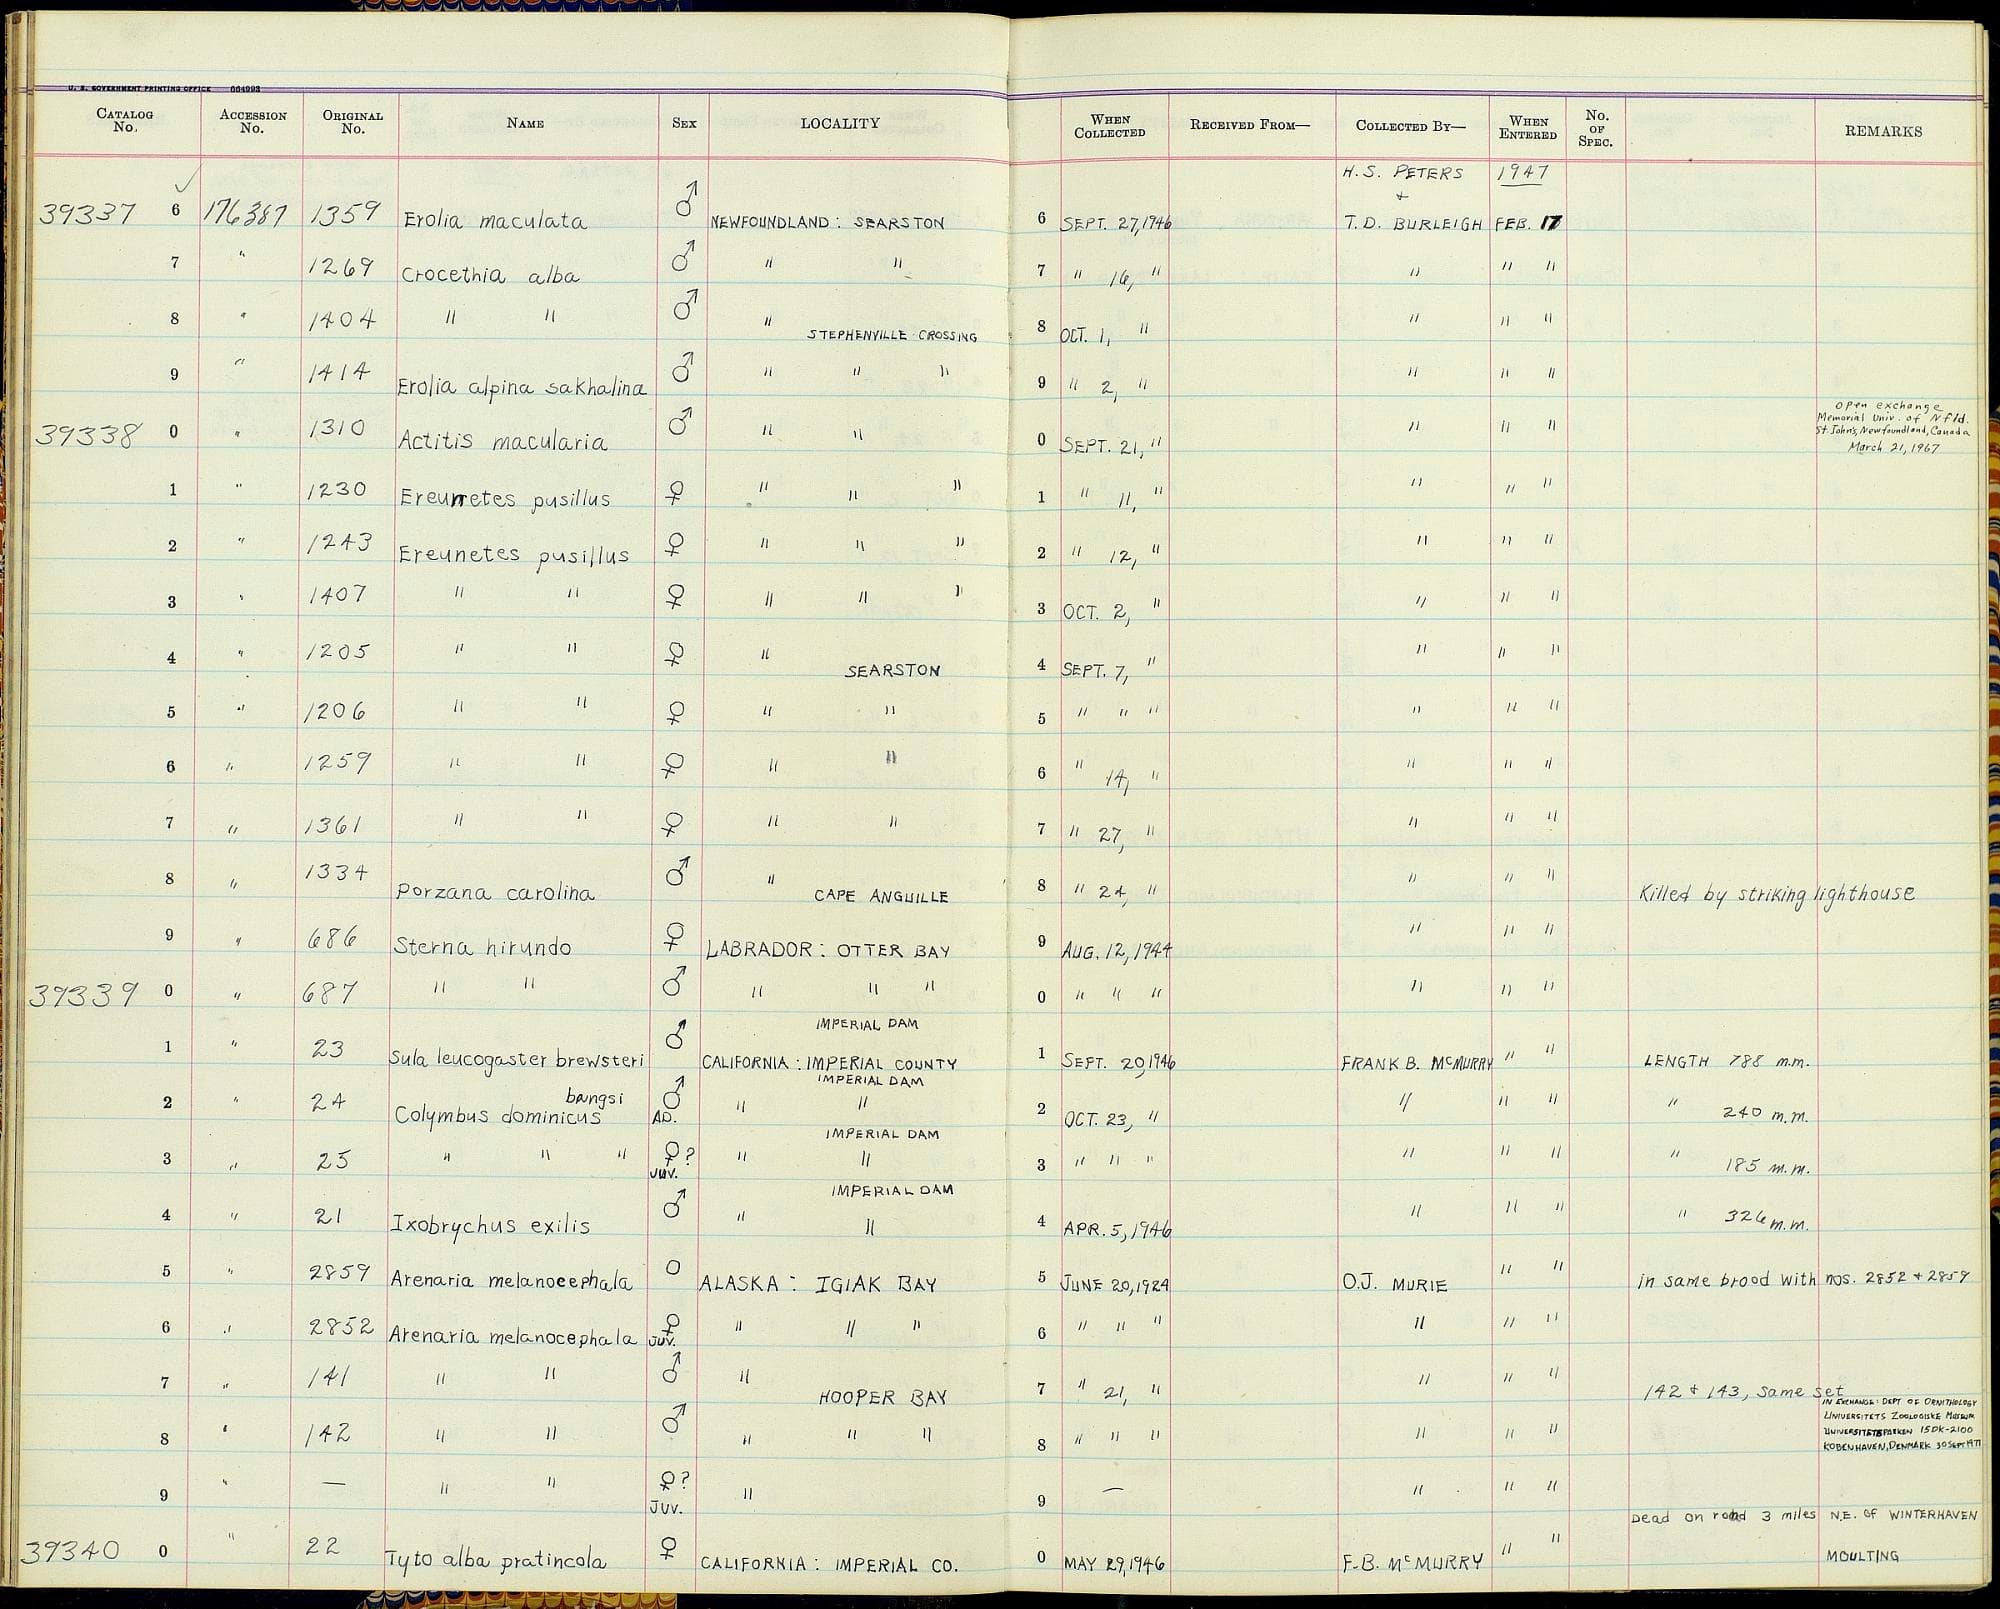 U. S. GOVERNMENT PRINTING OFFICE 664993
CATALOG No. ACCESSION No. ORIGINAL No. NAME SEX LOCALITY WHEN COLLECTED RECEIVED FROM— COLLECTED BY— WHEN ENTERED No. OF SPEC. REMARKS
H.S. PETERS 1947
+
39337 6 176387 1359 Erolia maculata ♂ NEWFOUNDLAND: SEARSTON 6 SEPT. 27, 1946 T.D. BURLEIGH FEB. 17
7 " 1269 Crocethia alba ♂ " " 7 " 16, " " " "
8 " 1404 " " ♂ " STEPHENVILLE CROSSING 8 OCT. 1, " " " "
9 " 1414 Erolia alpina sakhalina ♂ " " " 9 " 2, " " " "
open exchange
Memorial Univ. of Nfld.
St. John's, Newfoundland, Canada
March 21, 1967
39338 0 " 1310 Actitis macularia ♂ " " 0 SEPT. 21, " " " "
1 " 1230 Ereunetes pusillus ♀ " " " 1 " 11, " " " "
2 " 1243 Ereunetes pusillus ♀ " " " 2 " 12, " " " "
3 " 1407 " " ♀ " " " 3 OCT. 2, " " " "
4 " 1205 " " ♀ " SEARSTON 4 SEPT. 7, " " " "
5 " 1206 " " ♀ " " 5 " " " " " "
6 " 1259 " " ♀ " " 6 " 14, " " " "
7 " 1361 " " ♀ " " 7 " 27, " " " "
8 " 1334 Porzana carolina ♂ " CAPE ANGUILLE 8 " 24, " " " " Killed by striking lighthouse
9 " 686 Sterna hirundo ♀ LABRADOR: OTTER BAY 9 AUG. 12, 1944 " " "
39339 0 " 687 " " ♂ " " " 0 " " " " " "
IMPERIAL DAM
1 " 23 Sula leucogaster brewsteri ♂ CALIFORNIA: IMPERIAL COUNTY 1 SEPT. 20, 1946 FRANK B. McMURRY " " LENGTH 788 m.m.
bangsi IMPERIAL DAM
2 " 24 Colymbus dominicus ♂ AD. " " 2 OCT. 23, " " " " " 240 m.m.
IMPERIAL DAM
3 " 25 " " " ♀? JUV. " " 3 " " " " " " " 185 m.m.
IMPERIAL DAM
4 " 21 Ixobrychus exilis ♂ " " 4 APR. 5, 1946 " " " " 326 m.m.
5 " 2859 Arenaria melanocephala O ALASKA: IGIAK BAY 5 JUNE 20, 1924 O.J. MURIE " " in same brood with nos. 2852 + 2859
6 " 2852 Arenaria melanocephala ♀ JUV. " " " 6 " " " " " "
7 " 141 " " ♂ " HOOPER BAY 7 " 21, " " " " 142 + 143, same set
IN EXCHANGE: DEPT OF ORNITHOLOGY
UNIVERSITETS ZOOLOGISKE MUSEUM
UNIVERSITETSPARKEN 15 DK-2100
KOBENHAVEN, DENMARK 30 SEPT 1971
8 " 142 " " ♂ " " " 8 " " " " " "
9 " — " " ♀? JUV. " 9 — " " "
Dead on road 3 miles N.E. of WINTERHAVEN
39340 0 " 22 Tyto alba pratincola ♀ CALIFORNIA: IMPERIAL CO. 0 MAY 29, 1946 F.B. McMURRY " " MOULTING